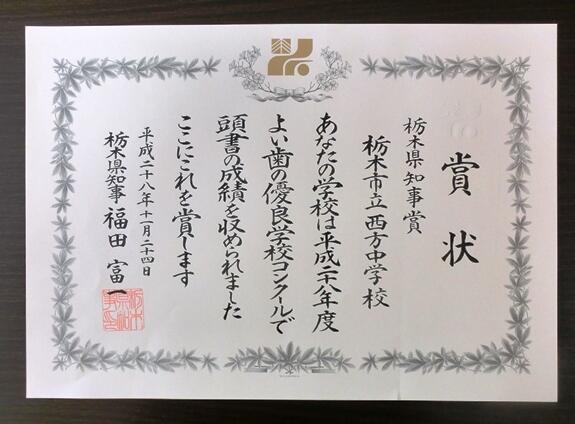 賞状
栃木県知事賞
栃木市立西方中学校
あなたの学校は平成二十八年度
よい歯の優良学校コンクールで
頭書の成績を収められました
ここにこれを賞します
平成二十八年十一月二十四日
栃木県知事 福田富一